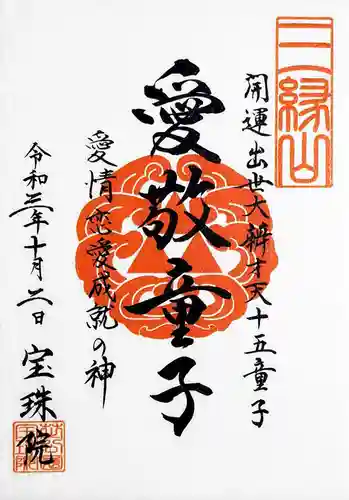 三縁山
開運出世大辨才天十五童子
愛敬童子
愛情恋愛成就の神
令和三年十月二日
宝珠院